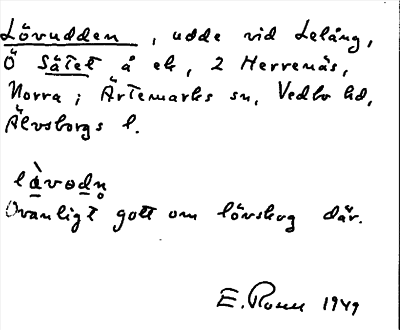 Lövudden, udde vid Lelång,
Ö Sätet å ek, 2 Herrenäs,
Norra; Ärtemarks sn, Vedbo hd,
Älvsborgs l.
làvodn̥
Ovanligt gott om lövskog där.
E. 1949